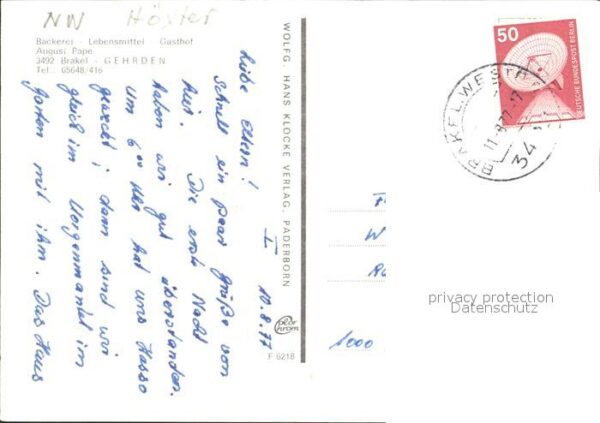 NW Höxter
Bäckerei - Lebensmittel - Gasthof
August Pape
3492 Brakel - GEHRDEN
Tel.: 05648/416
I 10.8.77
Liebe Eltern!
Schnell ein paar Grüße von
hier. Die erste Nacht
haben wir gut überstanden.
Um 6 00 Uhr hat uns Hasso
geweckt; dann sind wir
gleich im Morgenmantel im
Garten mit ihm. Das Haus
WOLFG. HANS KLOCKE VERLAG, PADERBORN
color chrom
F 6218
50
DEUTSCHE BUNDESPOST BERLIN
BRAKEL, WESTF
11.-8.77-17
34
1000
privacy protection
Datenschutz